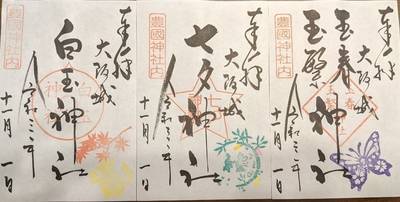 奉拝
大阪城
玉春
玉繁
神社
豊國神社内
令和三年
十一月一日
奉拝
大阪城
七夕神社
豊國神社内
令和三年
十一月一日
奉拝
大阪城
白玉神社
豊國神社内
令和三年
十一月一日